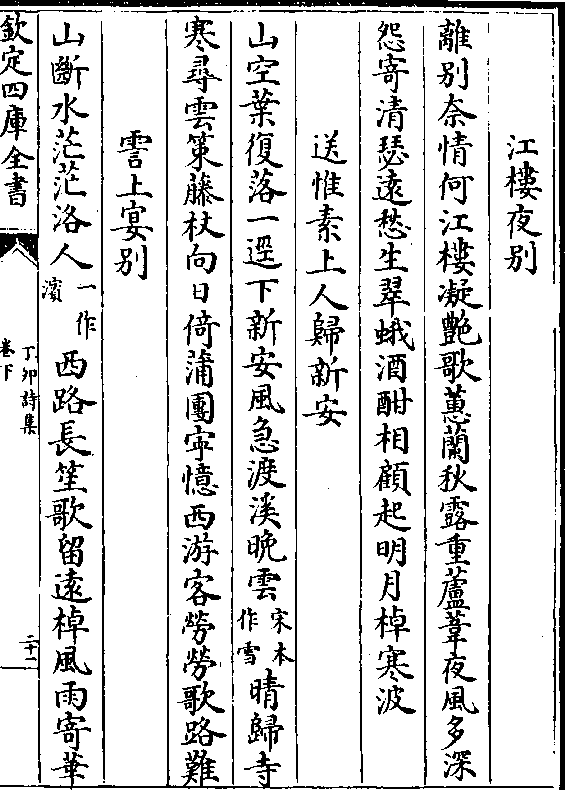 江樓夜別
離別奈情何江樓凝艷歌蕙蘭秋露重蘆葦夜風多深
怨寄清瑟遠愁生翠蛾酒酣相顧起明月棹寒波
送惟素上人歸新安
山空葉復落一逕下新安風急渡溪晚雲宋本作雪晴歸寺
寒尋雲策藤杖向日倚蒲團寧憶西游客勞勞歌路難
霅上宴別
山斷水茫茫洛人一作濱西路長笙歌留遠棹風雨寄華
欽定四庫全書
丁卯詩集
卷下
二十一